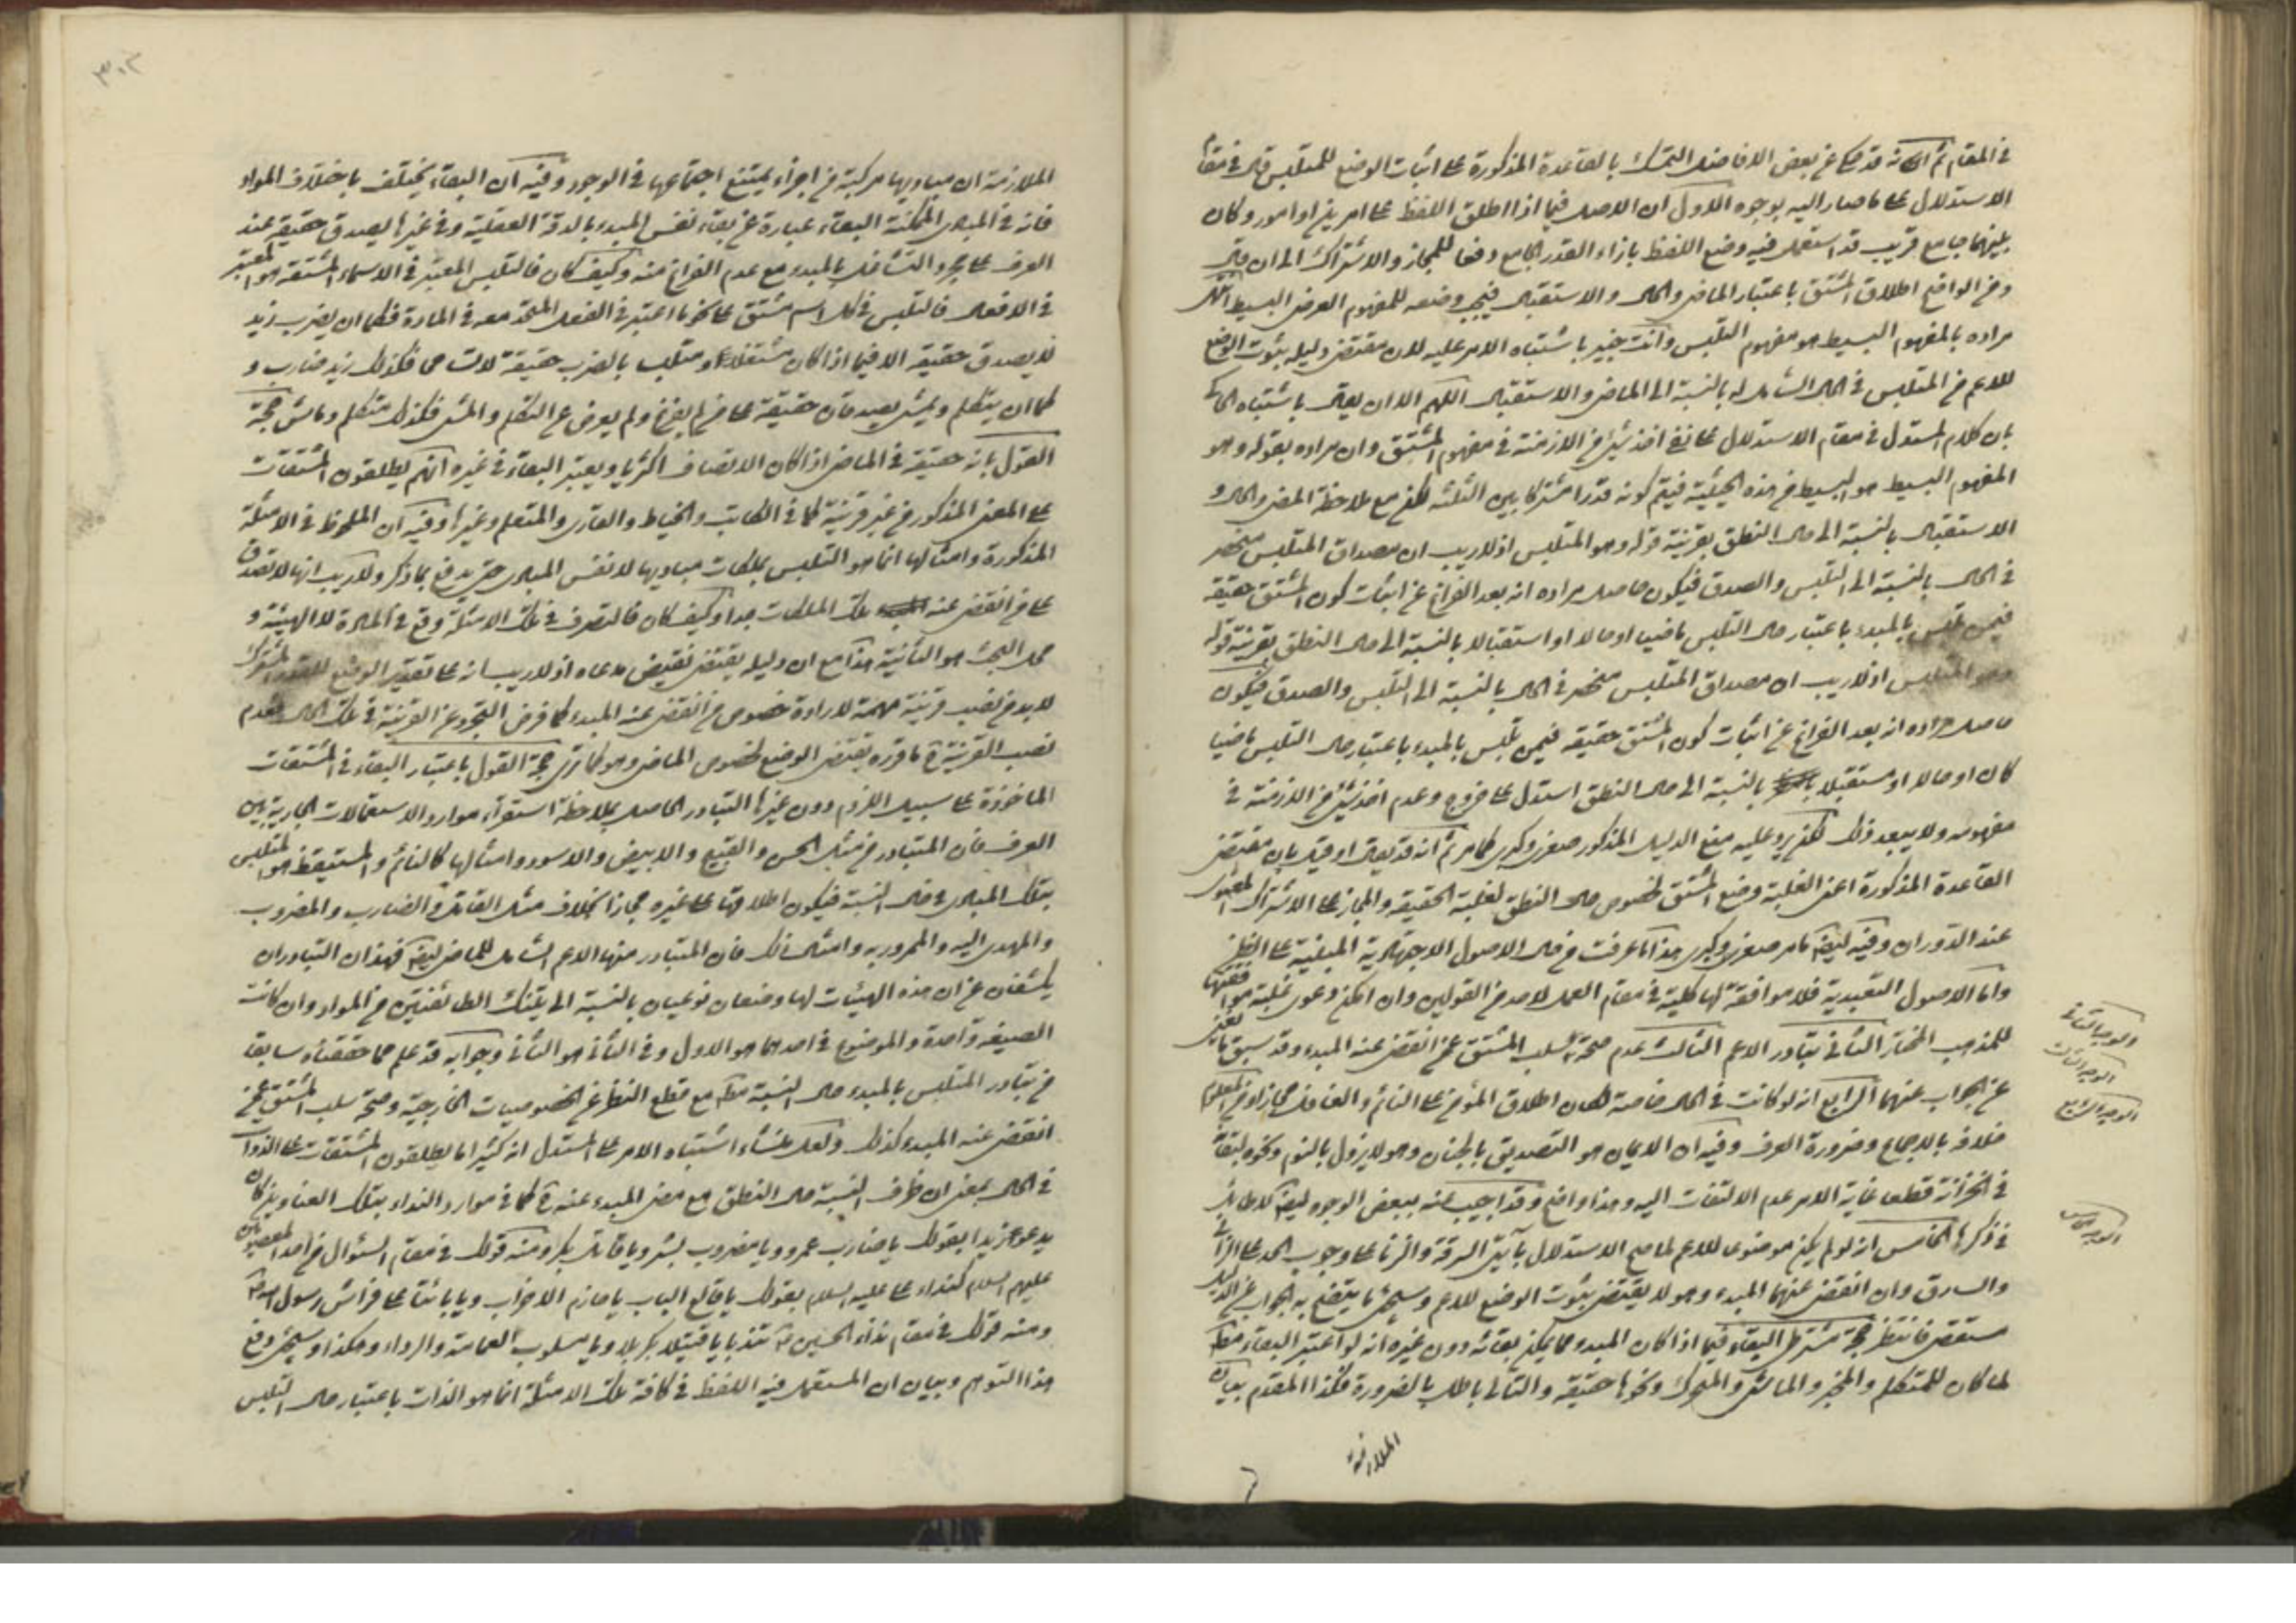 في المقام ثم انه قد حكي عن بعض الافاضل التمسك بالقاعدة المذكورة على اثبات الوضع للمتلبس قال في مقام
الاستدلال على ما صار اليه بوجوه الاول ان الاصل فيما اذا اطلق اللفظ على امرين او امور وكان
بينهما جامع قريب قد استعمل فيه وضع اللفظ بازاء القدر الجامع دفعا للمجاز والاشتراك الى ان قال
ومن الواقع اطلاق المشتق باعتبار الماضي والحال والاستقبال فيجب وضعه للمفهوم العرضي البسيط
مراده بالمفهوم البسيط هو مفهوم المتلبس وانت خبير باشتباه الامر عليه لان مقتضى دليله ثبوت الوضع
للاعم من المتلبس في الحال الشامل له بالنسبة الى الماضي والاستقبال اللهم الا ان يقال باشتباه الحاكي
بان كلام المستدل في مقام الاستدلال على نفي اخذ شيء من الازمنة في مفهوم المشتق وان مراده بقوله وهو
المفهوم البسيط هو البسيط من هذه الحيثية فيتم كونه قدرا مشتركا بين الثلثة لكن مع ملاحظة المضي والحال و
الاستقبال بالنسبة الى حال النطق بقرينة قوله وهو المتلبس اذ لا ريب ان مصداق المتلبس منحصر
في الحال بالنسبة الى التلبس والصدق فيكون حاصل مراده انه بعد الفراغ عن اثبات كون المشتق حقيقة
فيمن تلبس بالمبدء باعتبار حال التلبس ماضيا او حالا او استقبالا بالنسبة الى حال النطق بقرينة قوله
وهو المتلبس اذ لا ريب ان مصداق المتلبس منحصر في الحال بالنسبة الى التلبس والصدق فيكون
حاصل مراده انه بعد الفراغ عن اثبات كون المشتق حقيقة فيمن تلبس بالمبدء باعتبار حال التلبس ماضيا
كان او حالا او مستقبلا بالنسبة الى حال النطق استدل على خروج وعدم اخذ شيء من الازمنة في
مفهومه ولا يبعد ذلك لكن يرد عليه منع الدليل المذكور صغرى وكبرى كما مر ثم انه قد يقال او قيل بان مقتضى
القاعدة المذكورة اعني الغلبة وضع المشتق لخصوص حال النطق لغلبة الحقيقة والمجاز على الاشتراك المعنوي
عند الدوران وفيه ايضا ما مر صغرى وكبرى هذا ما عرفت من حال الاصول الاجتهادية المبنية على الظن
واما الاصول التعبدية فلا موافقة لها كلية في مقام العمل لاحد من القولين وان امكن دعوى غلبة موافقتها
للمذهب المختار الثاني تبادر الاعم الثالث عدم صحة سلب المشتق عمن انقضى عنه المبدء وقد سبق ما يغني
عن الجواب عنهما الرابع انه لو كانت في الحال خاصة لكان اطلاق المؤمن على النائم والغافل مجازا ومن المعلوم
خلافه بالاجماع وضرورة العرف وفيه ان الايمان هو التصديق بالجنان وهو لا يزول بالنوم ونحوه لبقائه
في الخزانة قطعا غاية الامر عدم الالتفات اليه وهذا واضح وقد اجيب عنه ببعض الوجوه ايضا لا طائل
في ذكرها الخامس انه لو لم يكن موضوعا للاعم لما صح الاستدلال بآيتي السرقة والزنا على وجوب الحد على الزاني
والسارق وان انقضى عنهما المبدء وهو لا يقتضي ثبوت الوضع للاعم وسيجيء ما يتضح به الجواب عن الدليل
مستقصى فانتظر حجة مشترط البقاء فيما اذا كان المبدء مما يمكن بقائه دون غيره انه لو اعتبر البقاء مطلقا
لما كان للمتكلم والمخبر والماشي والمتحرك ونحوها حقيقة والتالي باطل بالضرورة فكذا المقدم بيان
الملازمة
الوجه الثاني
الوجه الثالث
الوجه الرابع
الوجه الخامس
٣٠٢
الملازمة ان مباديها مركبة من اجزاء يمتنع اجتماعها في الوجود وفيه ان البقاء يختلف باختلاف المواد
فانه في المبادي الممكنة البقاء عبارة عن بقاء نفس المبدء بالدقة العقلية وفي غيرها يصدق حقيقة عند
العرف على مجرد التشاغل بالمبدء مع عدم الفراغ منه وكيف كان فالتلبس المعتبر في الاسماء المشتقة هو المعتبر
في الافعال فالتلبس في كل اسم مشتق على نحو ما اعتبر في الفعل المتحد معه في المادة فكما ان يضرب زيد
لا يصدق حقيقة الا فيما اذا كان مشتغلا او متلبسا بالضرب حقيقة فكذلك زيد ضارب و
كما ان يتكلم ويمشي يصدقان حقيقة على من لم يفرغ ولم يعرض عن التكلم والمشي فكذلك متكلم وماش حجة
القول بانه حقيقة في الماضي اذا كان الاتصاف اكثريا ويعتبر البقاء في غيره انهم يطلقون المشتقات
على المعنى المذكور من غير قرينة كما في الكاتب والخياط والقاري والمتعلم وغيرها وفيه ان الملحوظ في الامثلة
المذكورة وامثالها انما هو التلبس بملكات مباديها لا نفس المبادي حتى يدفع بما ذكر ولا ريب انها لا تصدق
على من انقضى عنه تلك الملكات جدا وكيف كان فالتصرف في تلك الامثلة وقع في المادة لا الهيئة و
محل البحث هو الثانية هذا مع ان دليله يقتضي نقيض مدعاه اذ لا ريب انه على تقدير الوضع للقدر المشترك
لا بد من نصب قرينة مفهمة لارادة خصوص من انقضى عنه المبدء كما فرض التجرد عن القرينة في تلك الحال فعدم
نصب القرينة على ما قرره يقتضي الوضع لخصوص الماضي وهو كما ترى حجة القول باعتبار البقاء في المشتقات
الماخوذة على سبيل اللزوم دون غيرها التبادر الحاصل بملاحظة استقراء موارد الاستعمالات الجارية بين
العرف فان المتبادر من مثل الحسن والقبيح والابيض والاسود وامثالها كالنائم والمستيقظ هو المتلبس
بتلك المبادي في حال النسبة فيكون اطلاقها على غيره مجازا بخلاف مثل القاتل والضارب والمضروب
والمهدى اليه والممرور به وامثال ذلك فان المتبادر منها الاعم الشامل للماضي ايضا فهذان التبادران
يكشفان عن ان هذه الهيئات لها وضعان نوعيان بالنسبة الى تينك الطائفتين من المواد وان كانت
الصيغة واحدة والموضوع في احدهما هو الاول وفي الثاني هو الثاني وجوابه قد علم مما حققناه سابقا
من تبادر المتلبس بالمبدء حال النسبة مطلقا مع قطع النظر عن الخصوصيات الخارجية وصحة سلب المشتق عمن
انقضى عنه المبدء كذلك ولعل منشاء اشتباه الامر على المستدل انه كثيرا ما يطلقون المشتقات على الذوات
في الحال بمعنى ان ظرف النسبة حال النطق مع مضي المبدء عنه كما في موارد النداء بتلك العناوين كان
يدعو زيدا بقولك يا ضارب عمرو ويا مضروب بشر ويا قاتل بكر ومنه قولك في مقام السؤال من احد المعصومين
عليهم السلم كنداء علي عليه السلم بقولك يا قالع الباب يا هازم الاحزاب ويا بائتا على فراش رسول الله
ومنه قولك في مقام نداء الحسين يا قتيلا بكربلا ويا مسلوب العمامة والرداء وهكذا وسيجيء دفع
هذا التوهم وبيان ان المستعمل فيه اللفظ في كافة تلك الامثلة انما هو الذات باعتبار حال التلبس